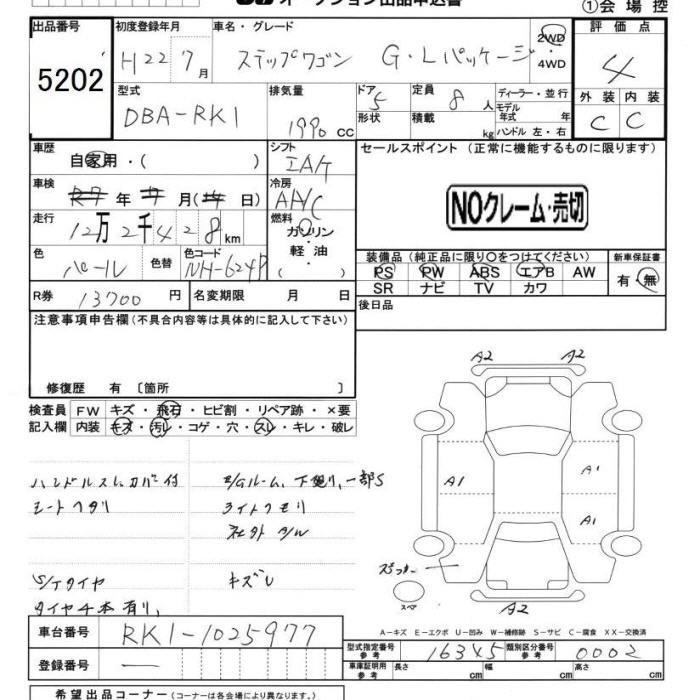 オークション出品申込書
①会場控
出品番号 初度登録年月 車名・グレード 評価点
5202 H22 7月 ステップワゴン G・Lパッケージ 2WD・4WD 4
型式 排気量 ドア 定員 ディーラー・並行 外装 内装
DBA-RK1 1990 cc 5 8人 モデル年式 年 C C
形状 積載 kg ハンドル 左・右
車歴 シフト セールスポイント(正常に機能するものに限ります)
自家用・( ) IAT
車検 冷房
年 月( ) A/C NOクレーム・売切
走行 燃料
12万2千428km ガソリン・軽油
色 色替 色コード 装備品(純正品に限り○をつけてください) 新車保証書
パール NH-624P PS PW ABS エアB AW 有・無
SR ナビ TV カワ
R券 13700円 名変期限 月 日 後日品
注意事項申告欄(不具合内容等は具体的に記入して下さい)
修復歴 有〔箇所 〕
検査員 FW キズ・飛石・ヒビ割・リペア跡・×要
記入欄 内装 キズ・汚レ・コゲ・穴・スレ・キレ・破レ
ハンドルスレ カバー付 下廻り、一部S
シートヘタリ ライトクモリ
社外 A/W
S/Tタイヤ キズU
タイヤ4本有り、
A2 A2
A1 A1
A1
スペア
A2
A-キズ E-エクボ U-凹み W-補修跡 S-サビ C-腐食 XX-交換済
車台番号 RK1-1025977
型式指定番号 参考 16345 類別区分番号 参考 0002
登録番号 —
車庫証明用 参考 長さ cm 幅 cm 高さ cm
希望出品コーナー(コーナーは各会場により異なります。)